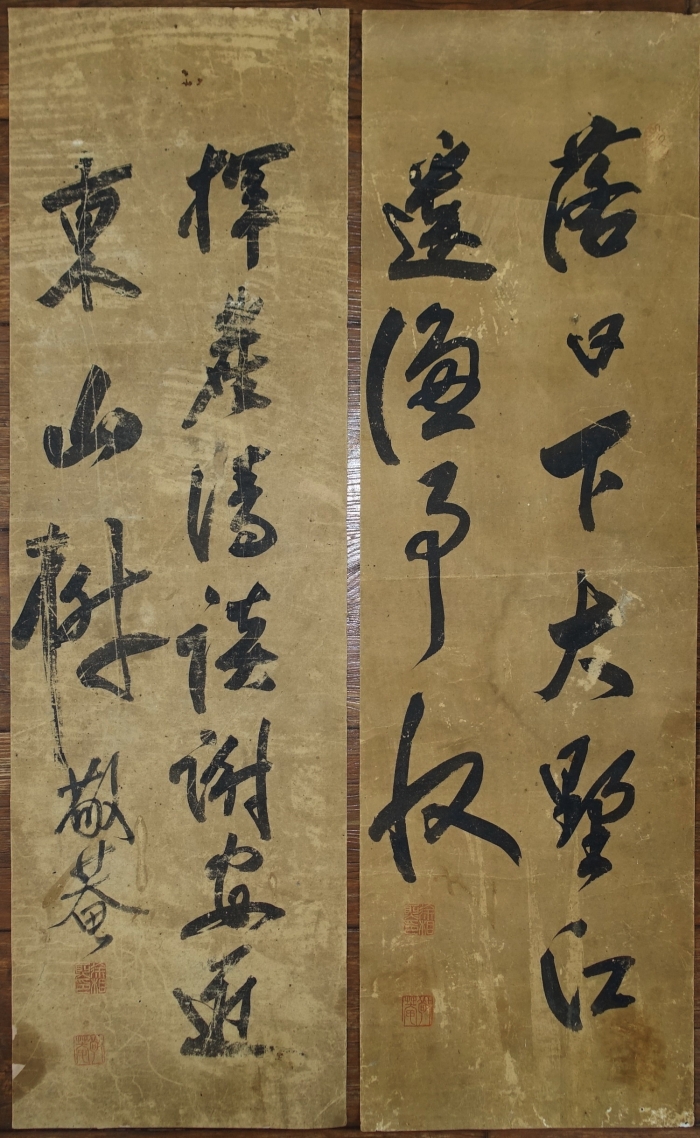 落日下大墅江
邊漁事收
揮麈清談謝安
東山
敬菴